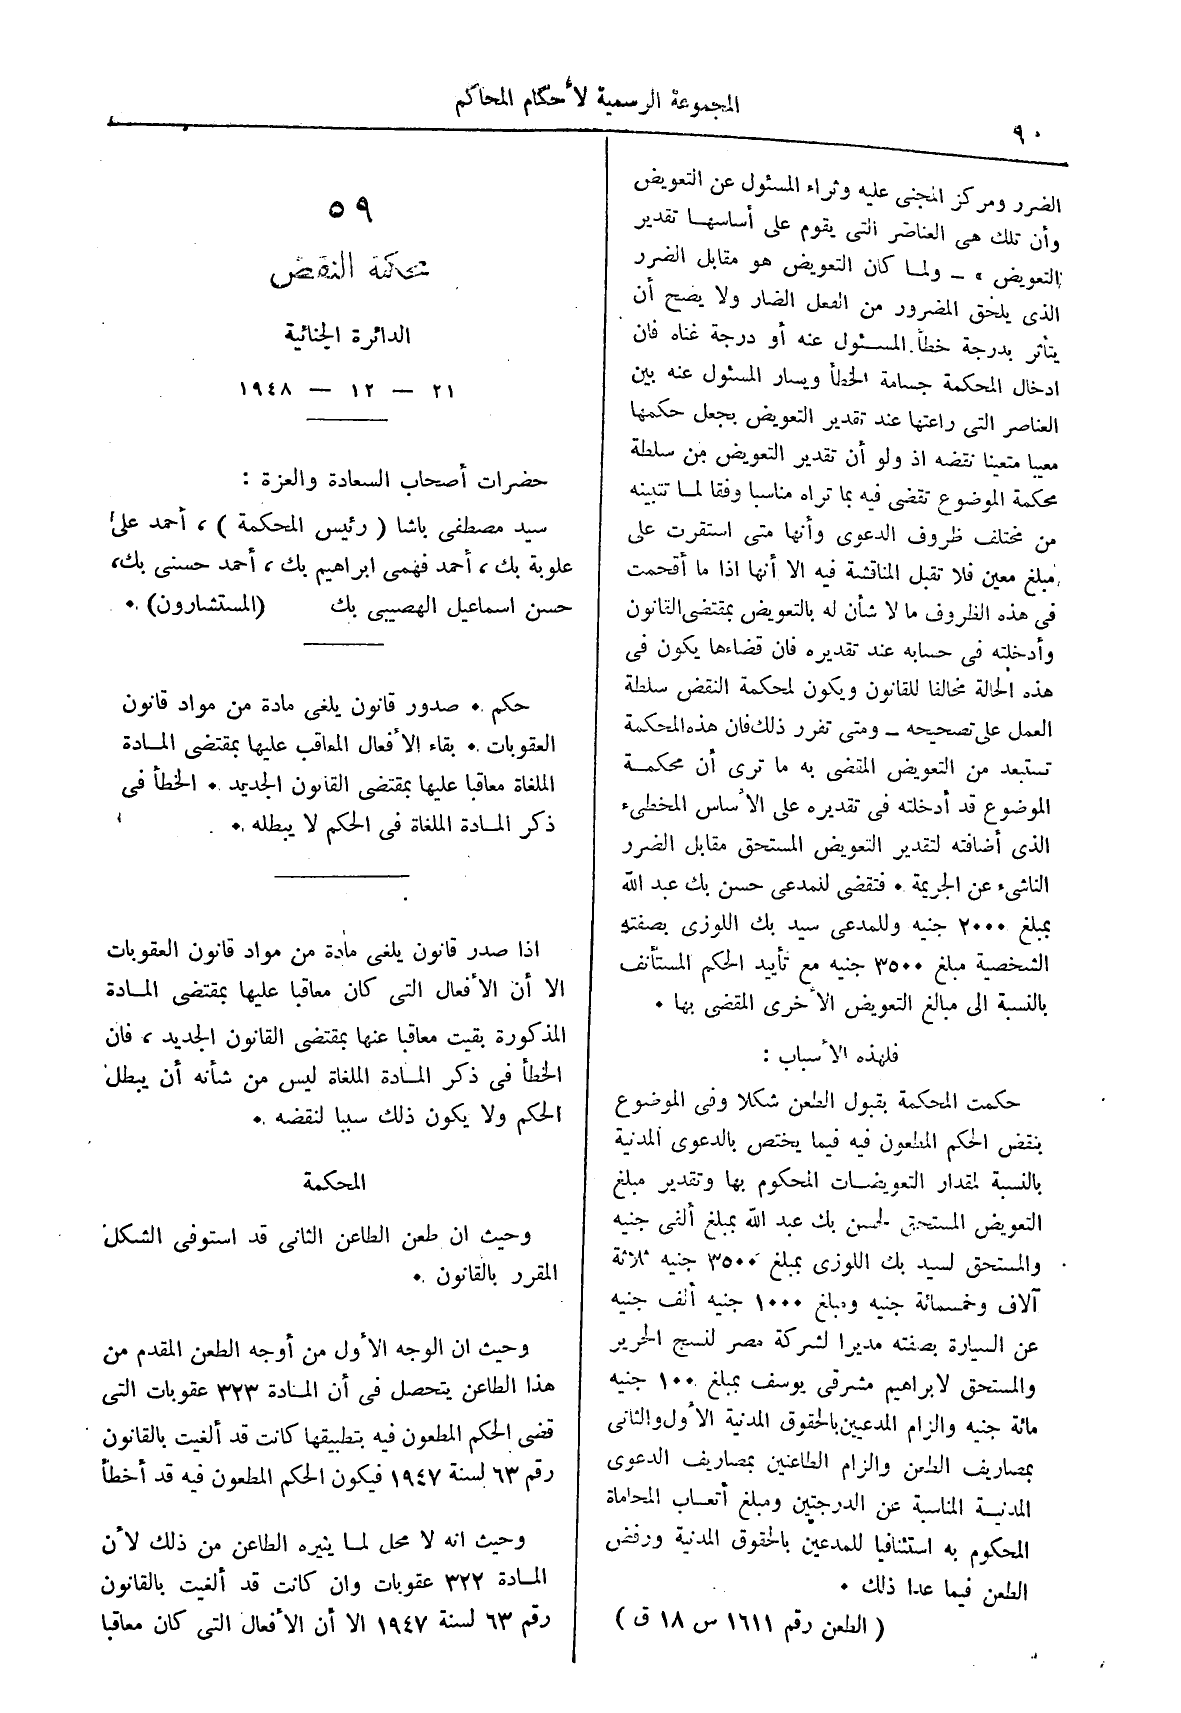 المجموعة الرسمية لأحكام المحاكم
٩٠
الضرر ومركز المجنى عليه وثراء المسئول عن التعويض
وأن تلك هى العناصر التى يقوم على أساسها تقدير
التعويض » ـ ولما كان التعويض هو مقابل الضرر
الذى يلحق المضرور من الفعل الضار ولا يصح أن
يتأثر بدرجة خطأ المسئول عنه أو درجة غناه فان
ادخال المحكمة جسامة الخطأ ويسار المسئول عنه بين
العناصر التى راعتها عند تقدير التعويض يجعل حكمها
معيبا متعينا نقضه اذ ولو أن تقدير التعويض من سلطة
محكمة الموضوع تقضى فيه بما تراه مناسبا وفقا لما تتبينه
من مختلف ظروف الدعوى وأنها متى استقرت على
مبلغ معين فلا تقبل المناقشة فيه الا أنها اذا ما أقحمت
فى هذه الظروف ما لا شأن له بالتعويض بمقتضى القانون
وأدخلته فى حسابه عند تقديره فان قضاءها يكون فى
هذه الحالة مخالفا للقانون ويكون لمحكمة النقض سلطة
العمل على تصحيحه ـ ومتى تقرر ذلك فان هذه المحكمة
تستبعد من التعويض المقضى به ما ترى أن محكمة
الموضوع قد أدخلته فى تقديره على الأساس المخطىء
الذى أضافته لتقدير التعويض المستحق مقابل الضرر
الناشىء عن الجريمة ٠ فتقضى للمدعى حسن بك عبد الله
بمبلغ ٢٠٠٠ جنيه وللمدعى سيد بك اللوزى بصفته
الشخصية مبلغ ٣٥٠٠ جنيه مع تأييد الحكم المستأنف
بالنسبة الى مبالغ التعويض الأخرى المقضى بها ٠
فلهذه الأسباب :
حكمت المحكمة بقبول الطعن شكلا وفى الموضوع
بنقض الحكم المطعون فيه فيما يختص بالدعوى المدنية
بالنسبة لمقدار التعويضات المحكوم بها وتقدير مبلغ
التعويض المستحق لحسن بك عبد الله بمبلغ ألفى جنيه
والمستحق لسيد بك اللوزى بمبلغ ٣٥٠٠ جنيه ثلاثة
آلاف وخمسمائة جنيه ومبلغ ١٠٠٠ جنيه ألف جنيه
عن السيارة بصفته مديرا لشركة مصر لنسج الحرير
والمستحق لابراهيم مشرقى يوسف بمبلغ ١٠٠ جنيه
مائة جنيه والزام المدعيين بالحقوق المدنية الأول والثانى
بمصاريف الطعن والزام الطاعنين بمصاريف الدعوى
المدنية المناسبة عن الدرجتين ومبلغ أتعاب المحاماة
المحكوم به استئنافيا للمدعين بالحقوق المدنية ورفض
الطعن فيما عدا ذلك ٠
( الطعن رقم ١٦١١ س ١٨ ق )
٥٩
محكمة النقض
الدائرة الجنائية
٢١ — ١٢ — ١٩٤٨
حضرات أصحاب السعادة والعزة :
سيد مصطفى باشا ( رئيس المحكمة ) ، أحمد على
علوبة بك ، أحمد فهمى ابراهيم بك ، أحمد حسنى بك،
حسن اسماعيل الهضيبى بك (المستشارون) ٠
حكم ٠ صدور قانون يلغى مادة من مواد قانون
العقوبات ٠ بقاء الأفعال المعاقب عليها بمقتضى المادة
الملغاة معاقبا عليها بمقتضى القانون الجديد ٠ الخطأ فى
ذكر المادة الملغاة فى الحكم لا يبطله ٠
اذا صدر قانون يلغى مادة من مواد قانون العقوبات
الا أن الأفعال التى كان معاقبا عليها بمقتضى المادة
المذكورة بقيت معاقبا عنها بمقتضى القانون الجديد ، فان
الخطأ فى ذكر المادة الملغاة ليس من شأنه أن يبطل
الحكم ولا يكون ذلك سببا لنقضه ٠
المحكمة
وحيث ان طعن الطاعن الثانى قد استوفى الشكل
المقرر بالقانون ٠
وحيث ان الوجه الأول من أوجه الطعن المقدم من
هذا الطاعن يتحصل فى أن المادة ٣٢٣ عقوبات التى
قضى الحكم المطعون فيه بتطبيقها كانت قد ألغيت بالقانون
رقم ٦٣ لسنة ١٩٤٧ فيكون الحكم المطعون فيه قد أخطأ
وحيث انه لا محل لما يثيره الطاعن من ذلك لأن
المادة ٣٢٢ عقوبات وان كانت قد ألغيت بالقانون
رقم ٦٣ لسنة ١٩٤٧ الا أن الأفعال التى كان معاقبا